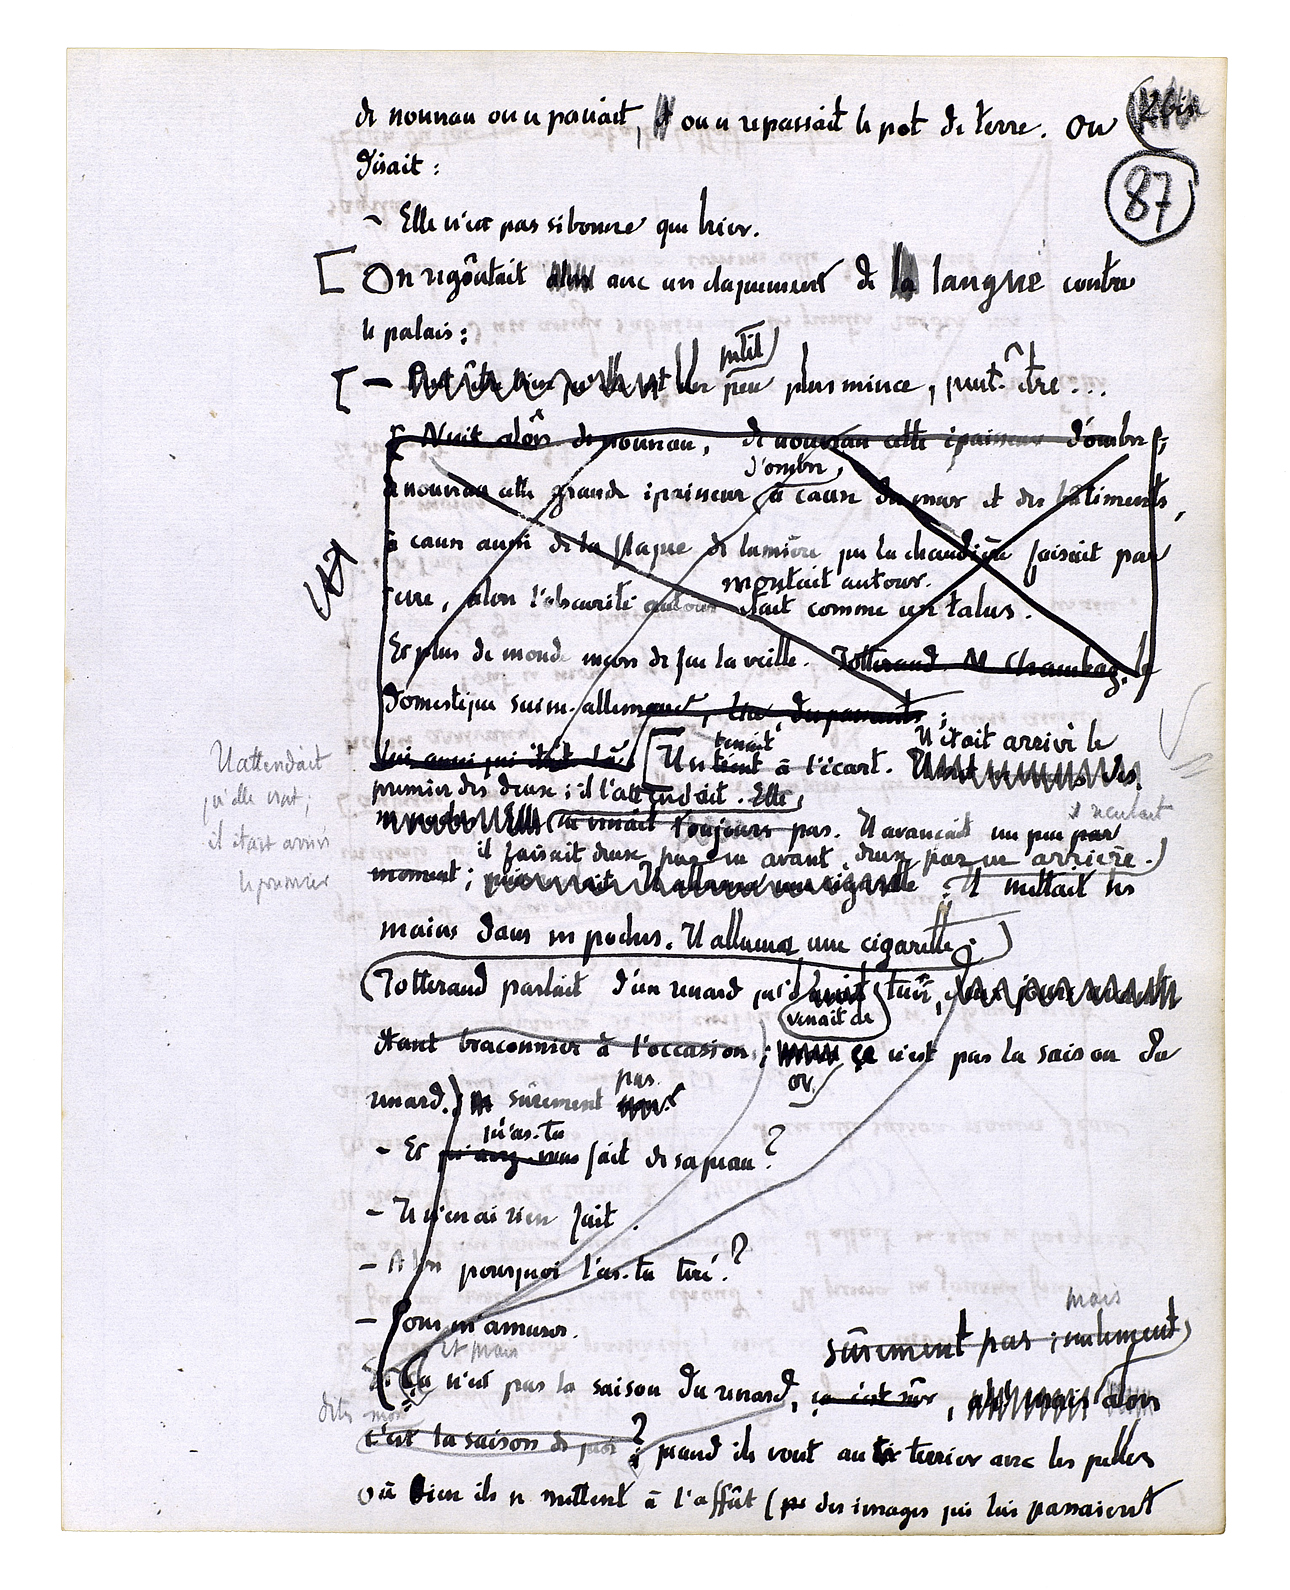 de nouveau on se passait, on se repassait le pot de terre. On
87
disait :
– Elle n'est pas si bonne que hier.
On regoûtait avec un claquement de la langue contre
le palais :
petit
– un peu plus mince, peut-être...
Nuit alors de nouveau, de nouveau cette épaisseur d'ombre ;
d'ombre,
de nouveau cette grande épaisseur à cause du mur et des bâtiments,
à cause aussi de la flaque de lumière que la chaudière faisait par
montait autour.
terre, alors l'obscurité autour était comme un talus.
Et plus de monde encore que la veille. Totterand M. Chambaz, le
domestique suisse-allemand,
lui aussi qui était là
tenait
Un tient à l'écart. Il était arrivé le
Il attendait
qu'elle vînt ;
il était arrivé
le premier
premier des deux ; il l'attendait. Elle
ne venait toujours pas. Il avançait un peu par
il reculait
il faisait deux pas en avant, deux pas en arrière.)
moment ; Il mettait les
mains dans ses poches. Il alluma une cigarette.
Totterand parlait d'un renard qu'il avait tué,
venait de
étant braconnier à l'occasion ; ça n'est pas la saison du
or
pas
renard. sûrement
qu'as-tu
– Et qu'avez-vous fait de sa peau ?
– Je n'en ai rien fait.
– Alors pourquoi l'as-tu tiré ?
– Pour m'amuser.
mais
sûrement pas ; seulement
et mais
Ça n'est pas la saison du renard, ça c'est sûr, mais alors
dites-moi
c'est la saison de quoi ? quand ils vont au terrier avec les pelles
ou bien ils se mettent à l'affût (des images qui lui passaient